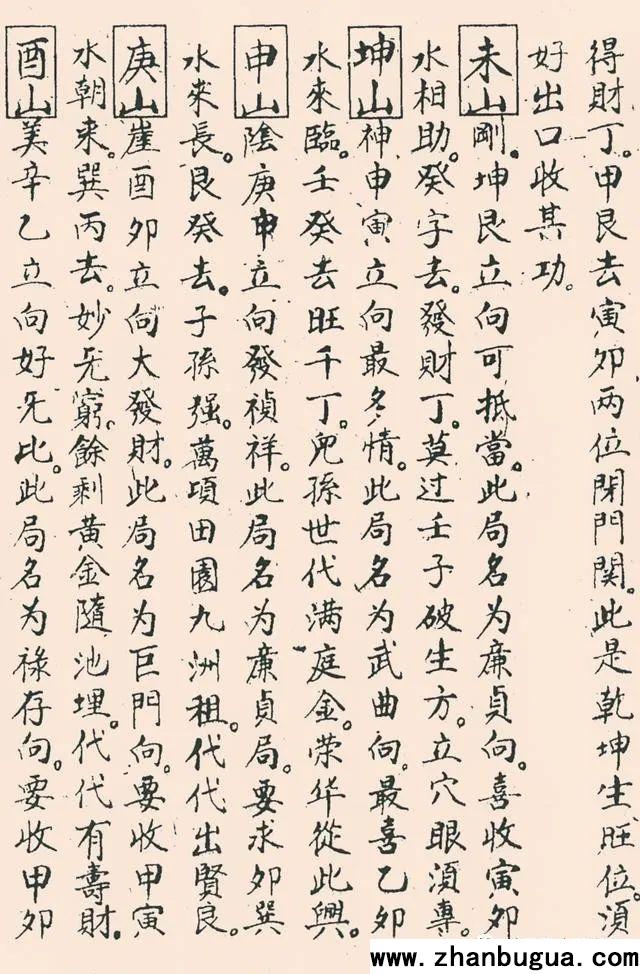 得財丁。甲艮去寅卯两位閉門関。此是乾坤生旺位。須
好出口收其功。
未山剛。坤艮立向可抵當。此局名为廉貞向。喜收寅卯
水相助。癸字去。發財丁。莫过壬子破生方。立穴眼須專。
坤山神。申寅立向最多情。此局名为武曲向。最喜乙卯
水來臨。壬癸去旺千丁。兒孫世代满庭金。荣华從此興。
申山陰。庚申立向發禎祥。此局名为廉貞局。要求卯巽
水來長。艮癸去。子孫强。萬項田園九洲租。代代出賢良。
庚山崖。酉卯立向大發財。此局名为巨門向。要收甲寅
水朝来。巽丙去。妙旡窮。餘剩黄金隨池埋。代代有壽財。
酉山美。辛乙立向好旡比。此局名为禄存向。要收甲卯
www.zhanbugua.com